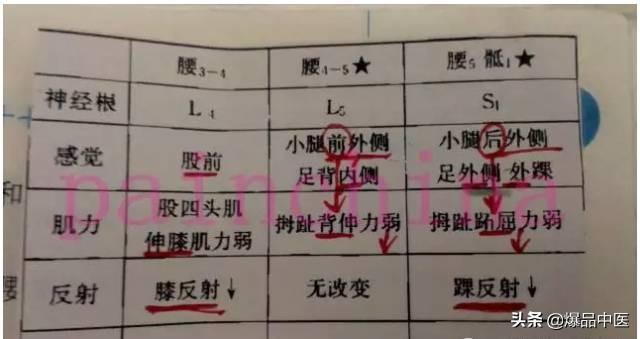 腰3-4 腰4-5★ 腰5 骶1★
神经根 L4 L5 S1
感觉 股前 小腿前外侧 足背内侧 小腿后外侧 足外侧 外踝
肌力 股四头肌 伸膝肌力弱 拇趾背伸力弱 拇趾跖屈力弱
反射 膝反射↓ 无改变 踝反射↓
和
腰
painchina
头条 @爆品中医